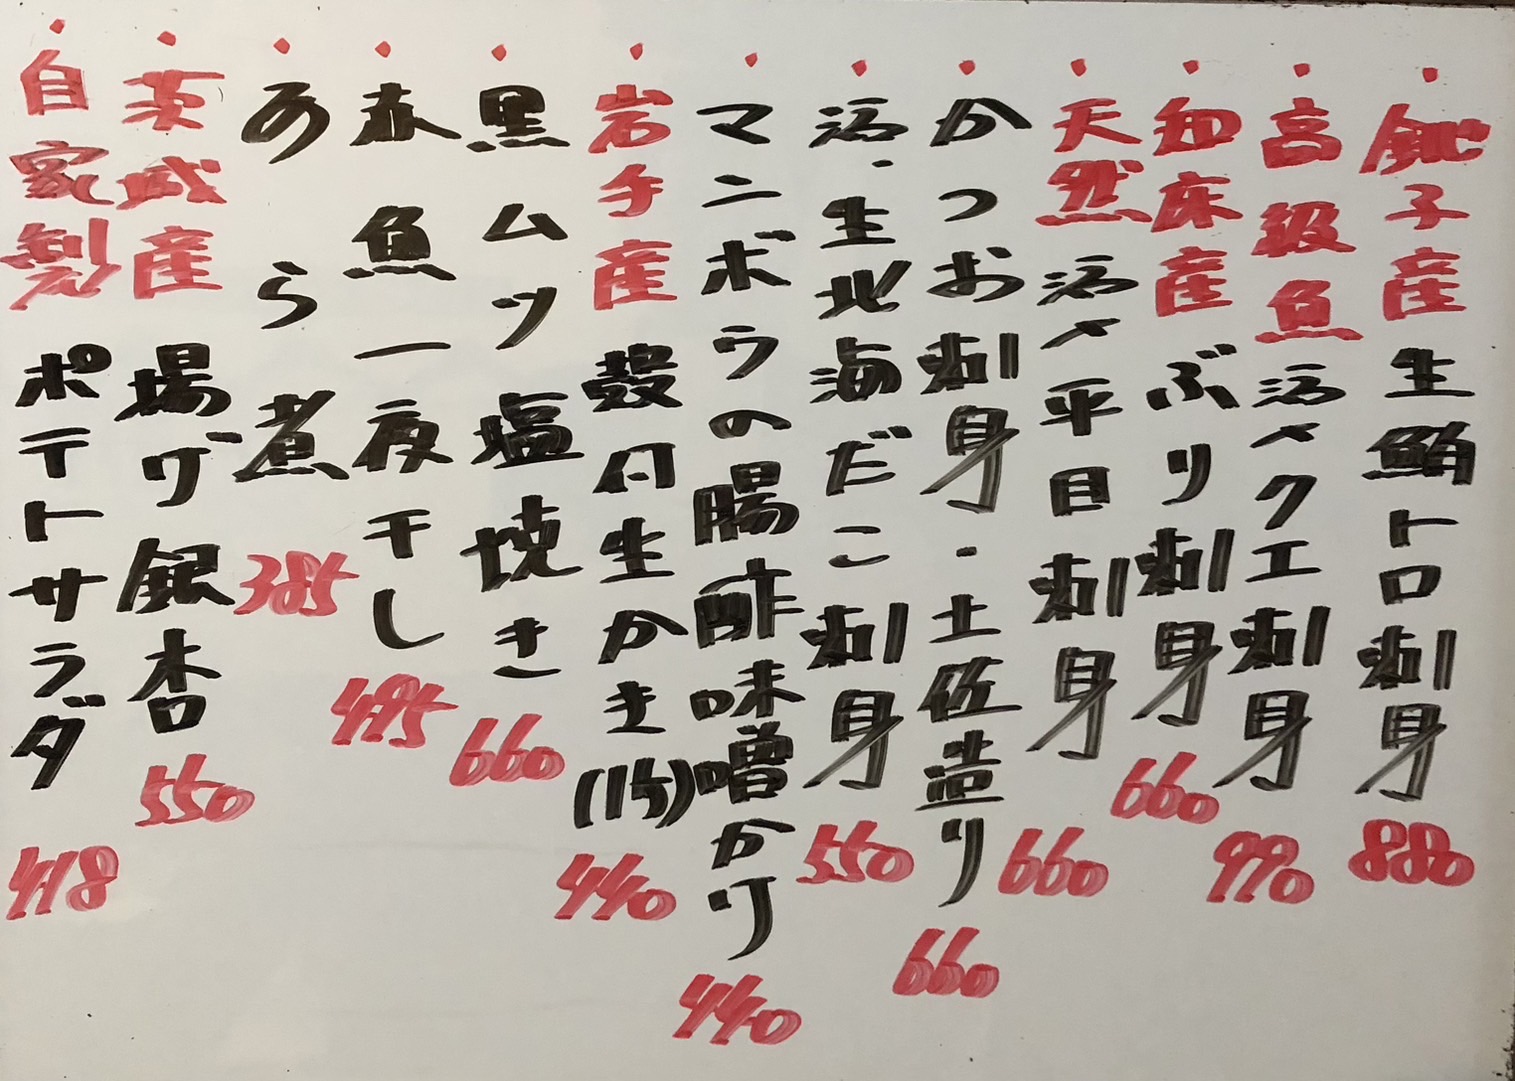 ・銚子産 生鮪トロ刺身 880
・高級魚 活〆クエ刺身 990
・知床産 ぶり刺身 660
・天然 活〆平目刺身 660
・かつお刺身・土佐造り 660
・活・生北海だこ刺身 550
・マンボウの腸酢味噌かけ 440
・岩手産 殻付生かき 440
・黒ムツ塩焼き 660
・赤魚一夜干し 495
・あら煮 385
・茨城産 揚げ銀杏 550
・自家製 ポテトサラダ 418